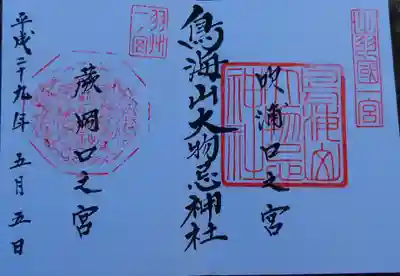 出羽國一宮
吹浦口之宮
鳥海山大物忌神社
羽州一ノ宮
蕨岡口之宮
平成二十九年 五月五日